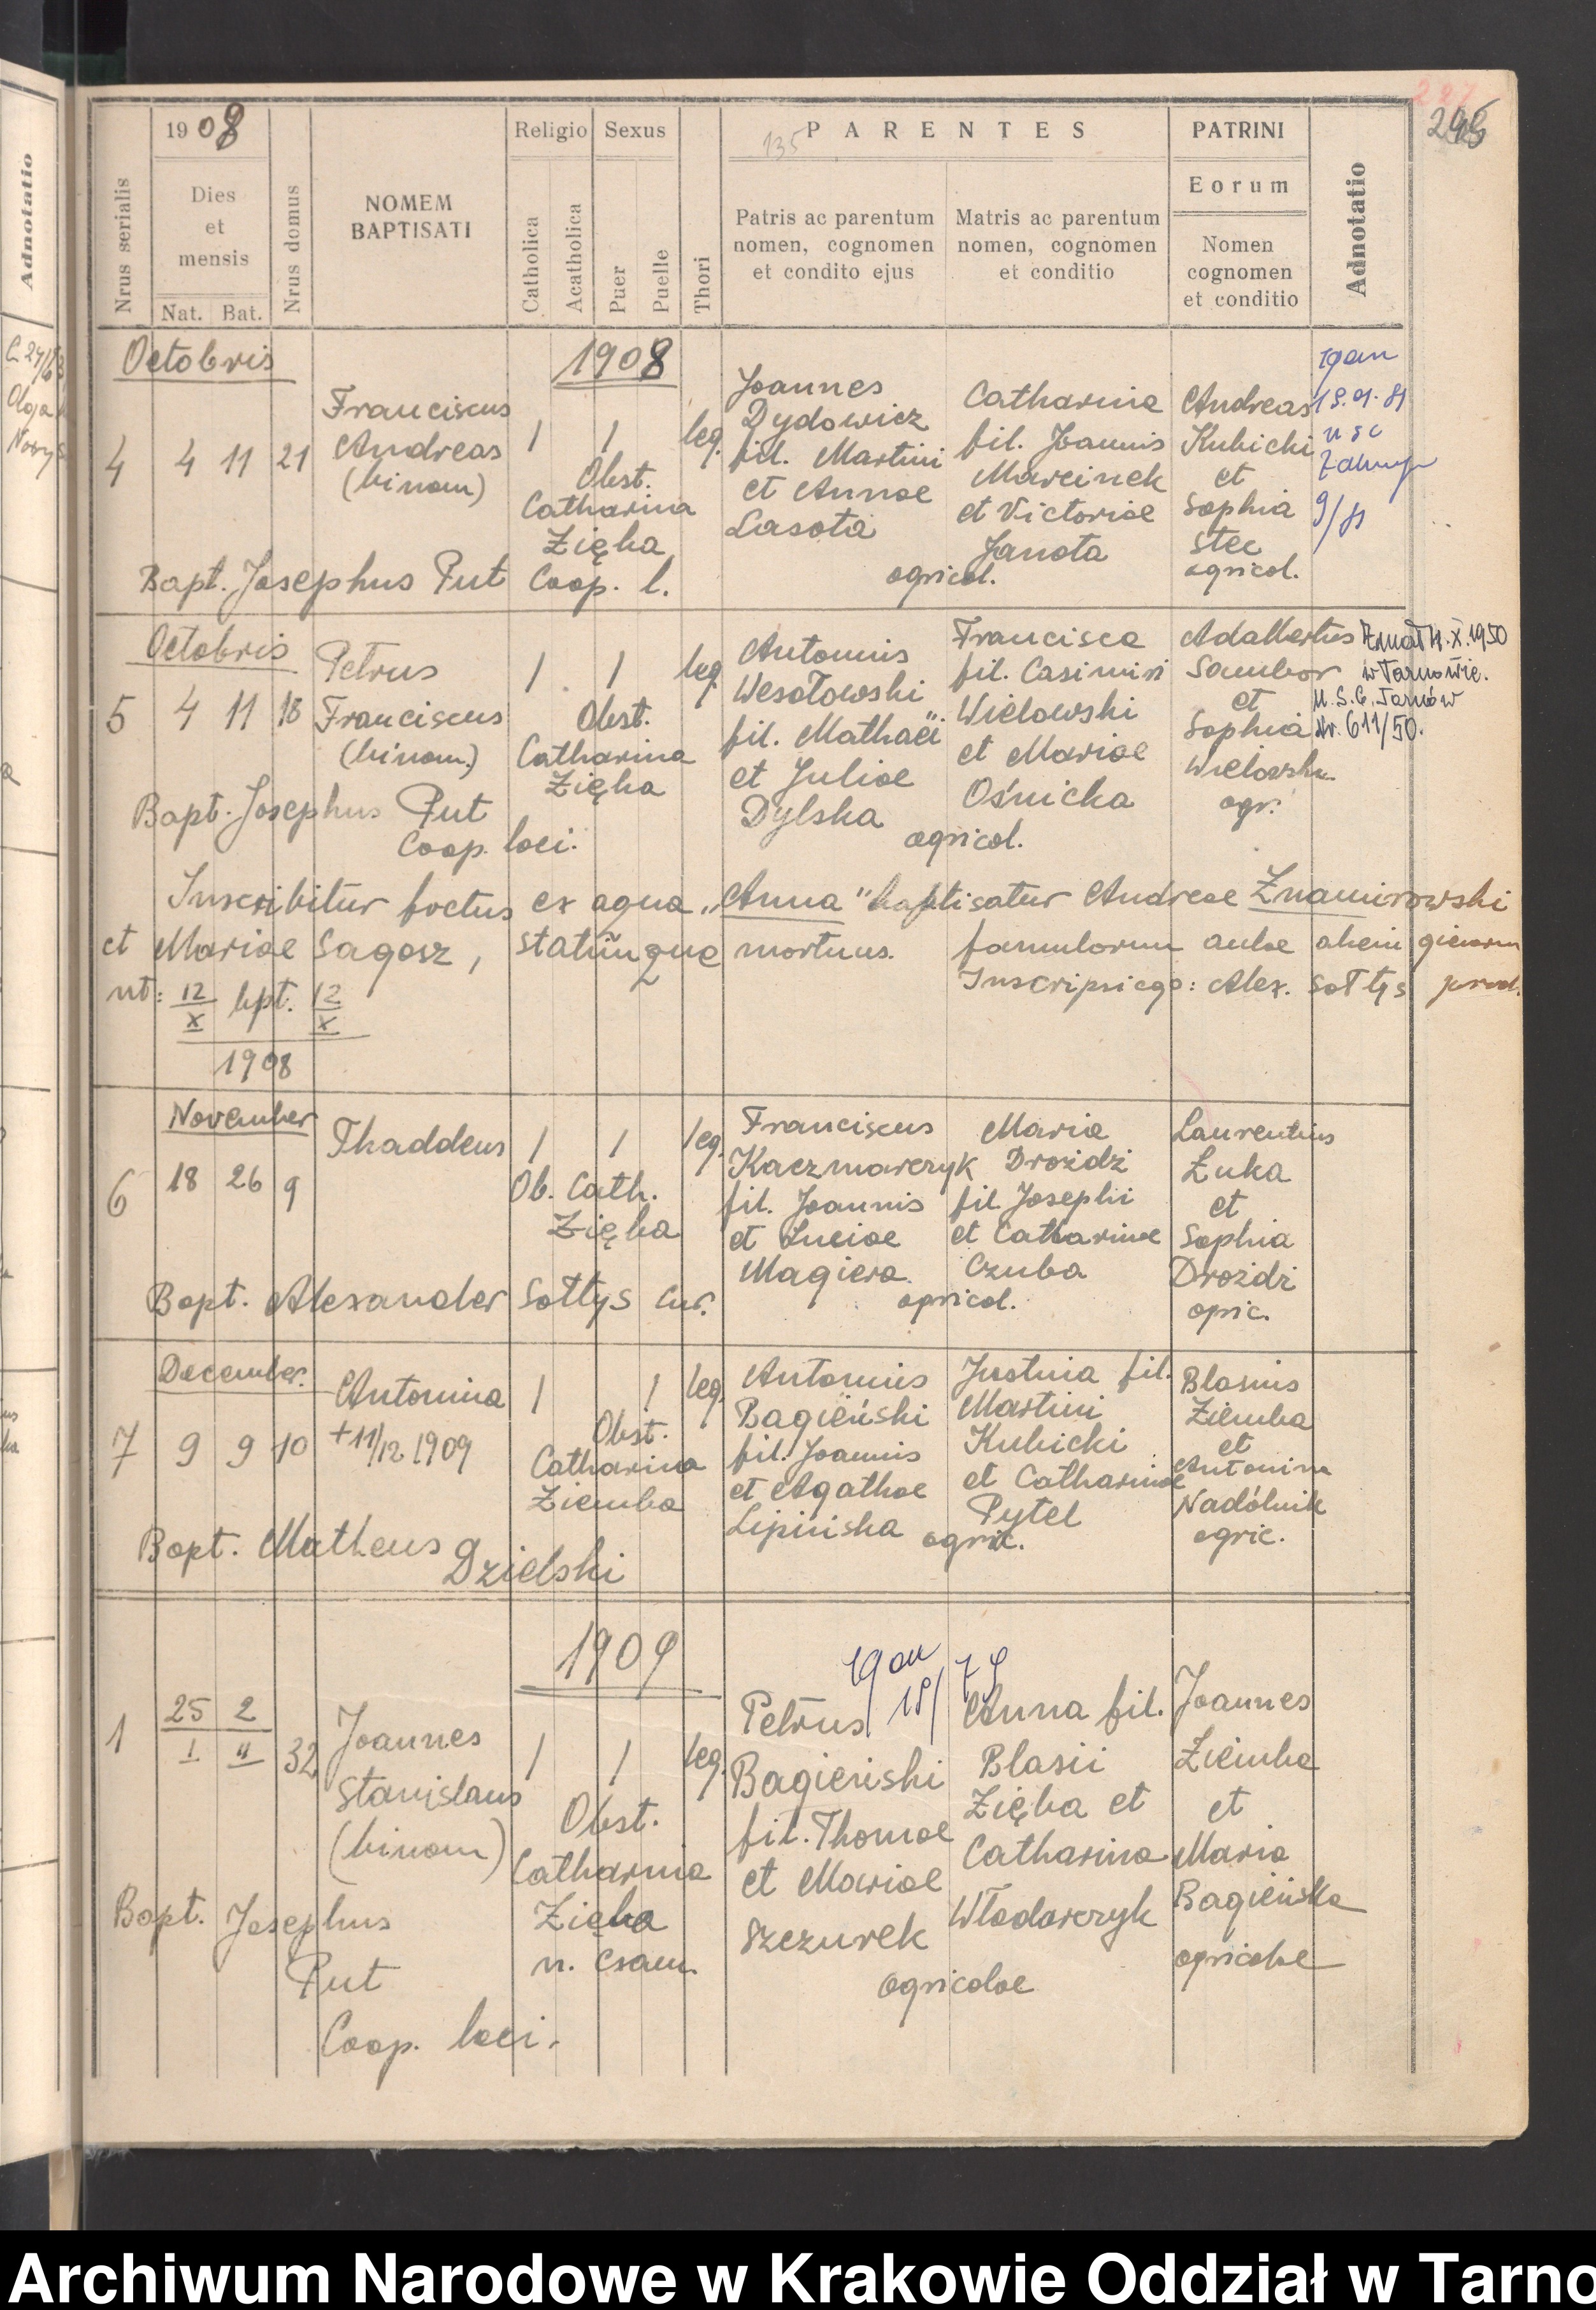 Adnotatio
Olga
1908
Religio Sexus
135
PARENTES
PATRINI
Nrus serialis
Dies
et
mensis
Nat. Bat.
Nrus domus
NOMEM
BAPTISATI
Catholica
Acatholica
Puer
Puelle
Thori
Patris ac parentum
nomen, cognomen
et condito ejus
Matris ac parentum
nomen, cognomen
et conditio
Eorum
Nomen
cognomen
et conditio
Adnotatio
Octobris
1908
4 4 11 21
Franciscus
Andreas
(binom)
1 1 leg.
Obst.
Catharina
Zięba
Joannes
Dydowicz
fil. Martini
et Annae
Lasota
Catharina
fil. Joannis
Marcinek
et Victoriae
Janota
agricol.
Andreas
Kubicki
et
Sophia
Stec
agricol.
zgon
usc
9/81
Bapt. Josephus Put Coop. l.
Octobris
5 4 11 18
Petrus
Franciscus
(binom.)
1 1 leg.
Obst.
Catharina
Zięba
Antonius
Wesołowski
fil. Mathaei
et Juliae
Dylska
Francisca
fil. Casimiri
Wielowski
et Mariae
Ośnicka
agricol.
Adalbertus
Sambor
et
Sophia
Wielowska
agr.
w Tarnowie.
U.S.C. Tarnów
Nr. 611/50.
Bapt. Josephus Put
Coop. loci.
Inscribitur foetus ex aqua "Anna" baptisatur Andreae Znamirowski
et Mariae Sagasz, statimque mortuus. famulorum aulae
Inscripsi ego: Alex. Sołtys
nt: 12/X bpt. 12/X
1908
November
6 18 26 9
Thaddeus
1 1 leg.
Ob. Cath.
Zięba
Franciscus
Kaczmarczyk
fil. Joannis
et Luciae
Magiera
Maria
Drożdż
fil Josephi
et Catharinae
Czuba
agricol.
Laurentius
Łuka
et
Sophia
Drożdż
agric.
Bapt. Alexander Sołtys cur.
December.
7 9 9 10
Antonina
+11/12 1909
1 1 leg.
Obst.
Catharina
Ziemba
Antonius
Bagieński
fil. Joannis
et Agathae
Lipińska
Justina fil.
Martini
Kubicki
et Catharinae
Pytel
agric.
Blasius
Ziemba
et
Antonina
Nadólnik
agric.
Bapt. Matheus
Dzielski
1909
zgon
18/79
1 25/I 2/II 32
Joannes
Stanislaus
(binom)
1 1 leg.
Obst.
Catharina
Zięba
n. exam.
Petrus
Bagieński
fil. Thomae
et Mariae
Szczurek
Anna fil.
Blasii
Zięba et
Catharina
Włodarczyk
agricolae
Joannes
Ziemba
et
Maria
Bagieńska
agricolae
Bapt. Josephus
Put
Coop. loci.
Archiwum Narodowe w Krakowie Oddział w Tarno